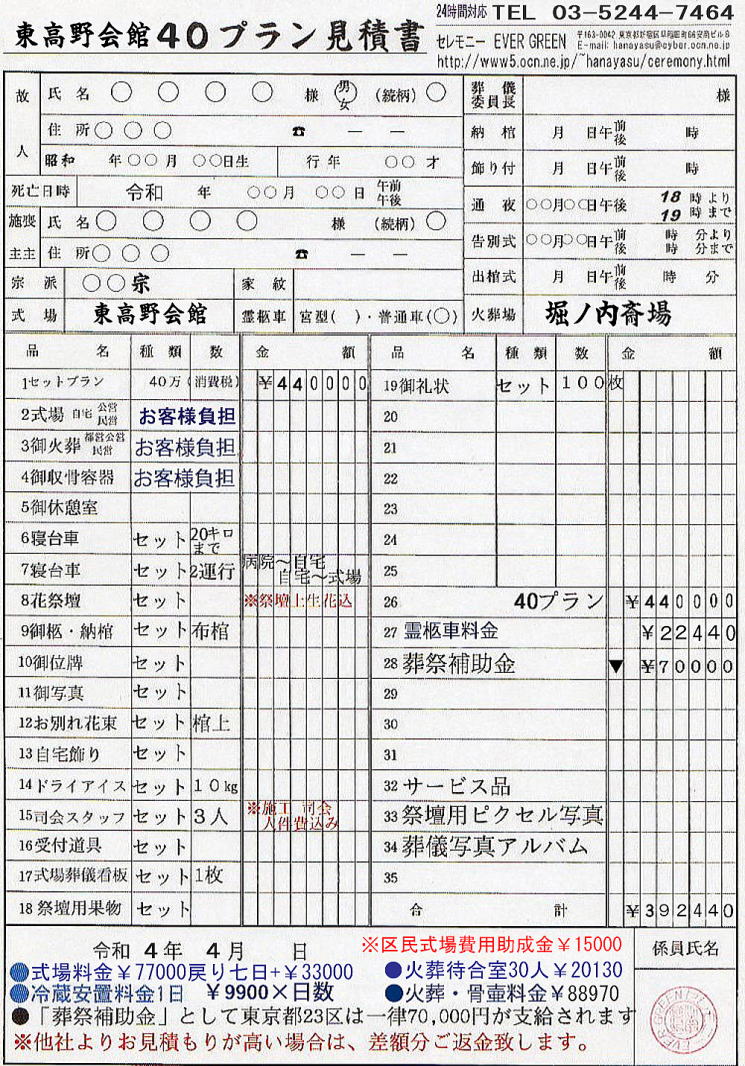 24時間対応 TEL 03-5244-7464
東高野会館40プラン見積書
セレモニー EVER GREEN
E-mail: hanayasu@cyber.ocn.ne.jp
http://www5.ocn.ne.jp/~hanayasu/ceremony.html
故人 氏名 ○ ○ ○ ○ 様 男 女 (続柄) ○
住所 ○ ○ ○ ☎ — —
昭和 年○○月 ○○日生 行年 ○○才
死亡日時 令和 年 ○○月 ○○日 午前 午後
施主 喪主 氏名 ○ ○ ○ ○ 様 (続柄) ○
住所 ○ ○ ○ ☎ — —
宗派 ○○宗 家紋
式場 東高野会館 霊柩車 宮型( )・普通車(○)
葬儀委員長 様
納棺 月 日午前後 時
飾り付 月 日午前後 時
通夜 ○○月○○日午後 18時より 19時まで
告別式 ○○月○○日午前後 時 分より 時 分まで
出棺式 月 日午前後 時 分
火葬場 堀ノ内斎場
品名 種類 数 金額
1セットプラン 40万(消費税) ¥440000
2式場 自宅 公営 民営 お客様負担
3御火葬 都営公営 民営 お客様負担
4御収骨容器 お客様負担
5御休憩室
6寝台車 セット 20キロまで
7寝台車 セット 2運行 病院~自宅 自宅~式場
8花祭壇 セット ※祭壇上生花込
9御柩・納棺 セット 布棺
10御位牌 セット
11御写真 セット
12お別れ花束 セット 棺上
13自宅飾り セット
14ドライアイス セット 10kg
15司会スタッフ セット 3人 ※施工 司会 人件費込み
16受付道具 セット
17式場葬儀看板 セット 1枚
18祭壇用果物 セット
品名 種類 数 金額
19御礼状 セット 100枚
20
21
22
23
24
25
26 40プラン ¥440000
27 霊柩車料金 ¥22440
28 葬祭補助金 ▼ ¥70000
29
30
31
32 サービス品
33 祭壇用ピクセル写真
34 葬儀写真アルバム
35
合計 ¥392440
令和 4年 4月 日 ※区民式場費用助成金¥15000
●式場料金¥77000戻り七日+¥33000 ●火葬待合室30人¥20130
●冷蔵安置料金1日 ¥9900×日数 ●火葬・骨壺料金¥88970
●「葬祭補助金」として東京都23区は一律70,000円が支給されます
※他社よりお見積もりが高い場合は、差額分ご返金致します。
係員氏名